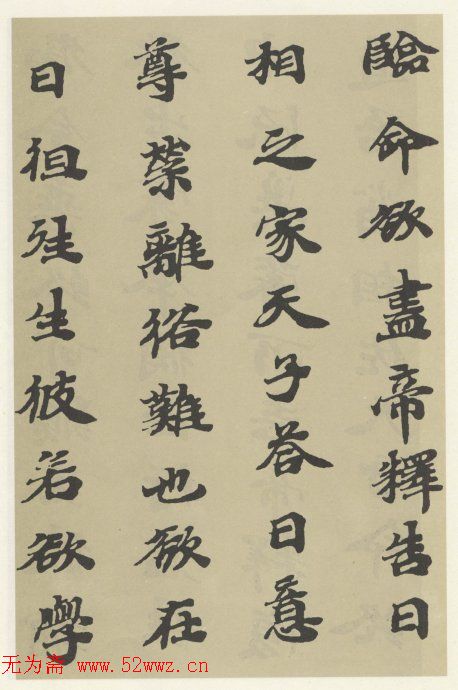 臨命欲盡帝釋告曰
相之家天子答曰意
尊榮離俗難也欲在
曰徂往生彼若欲學
无为斋 www.52wwz.cn